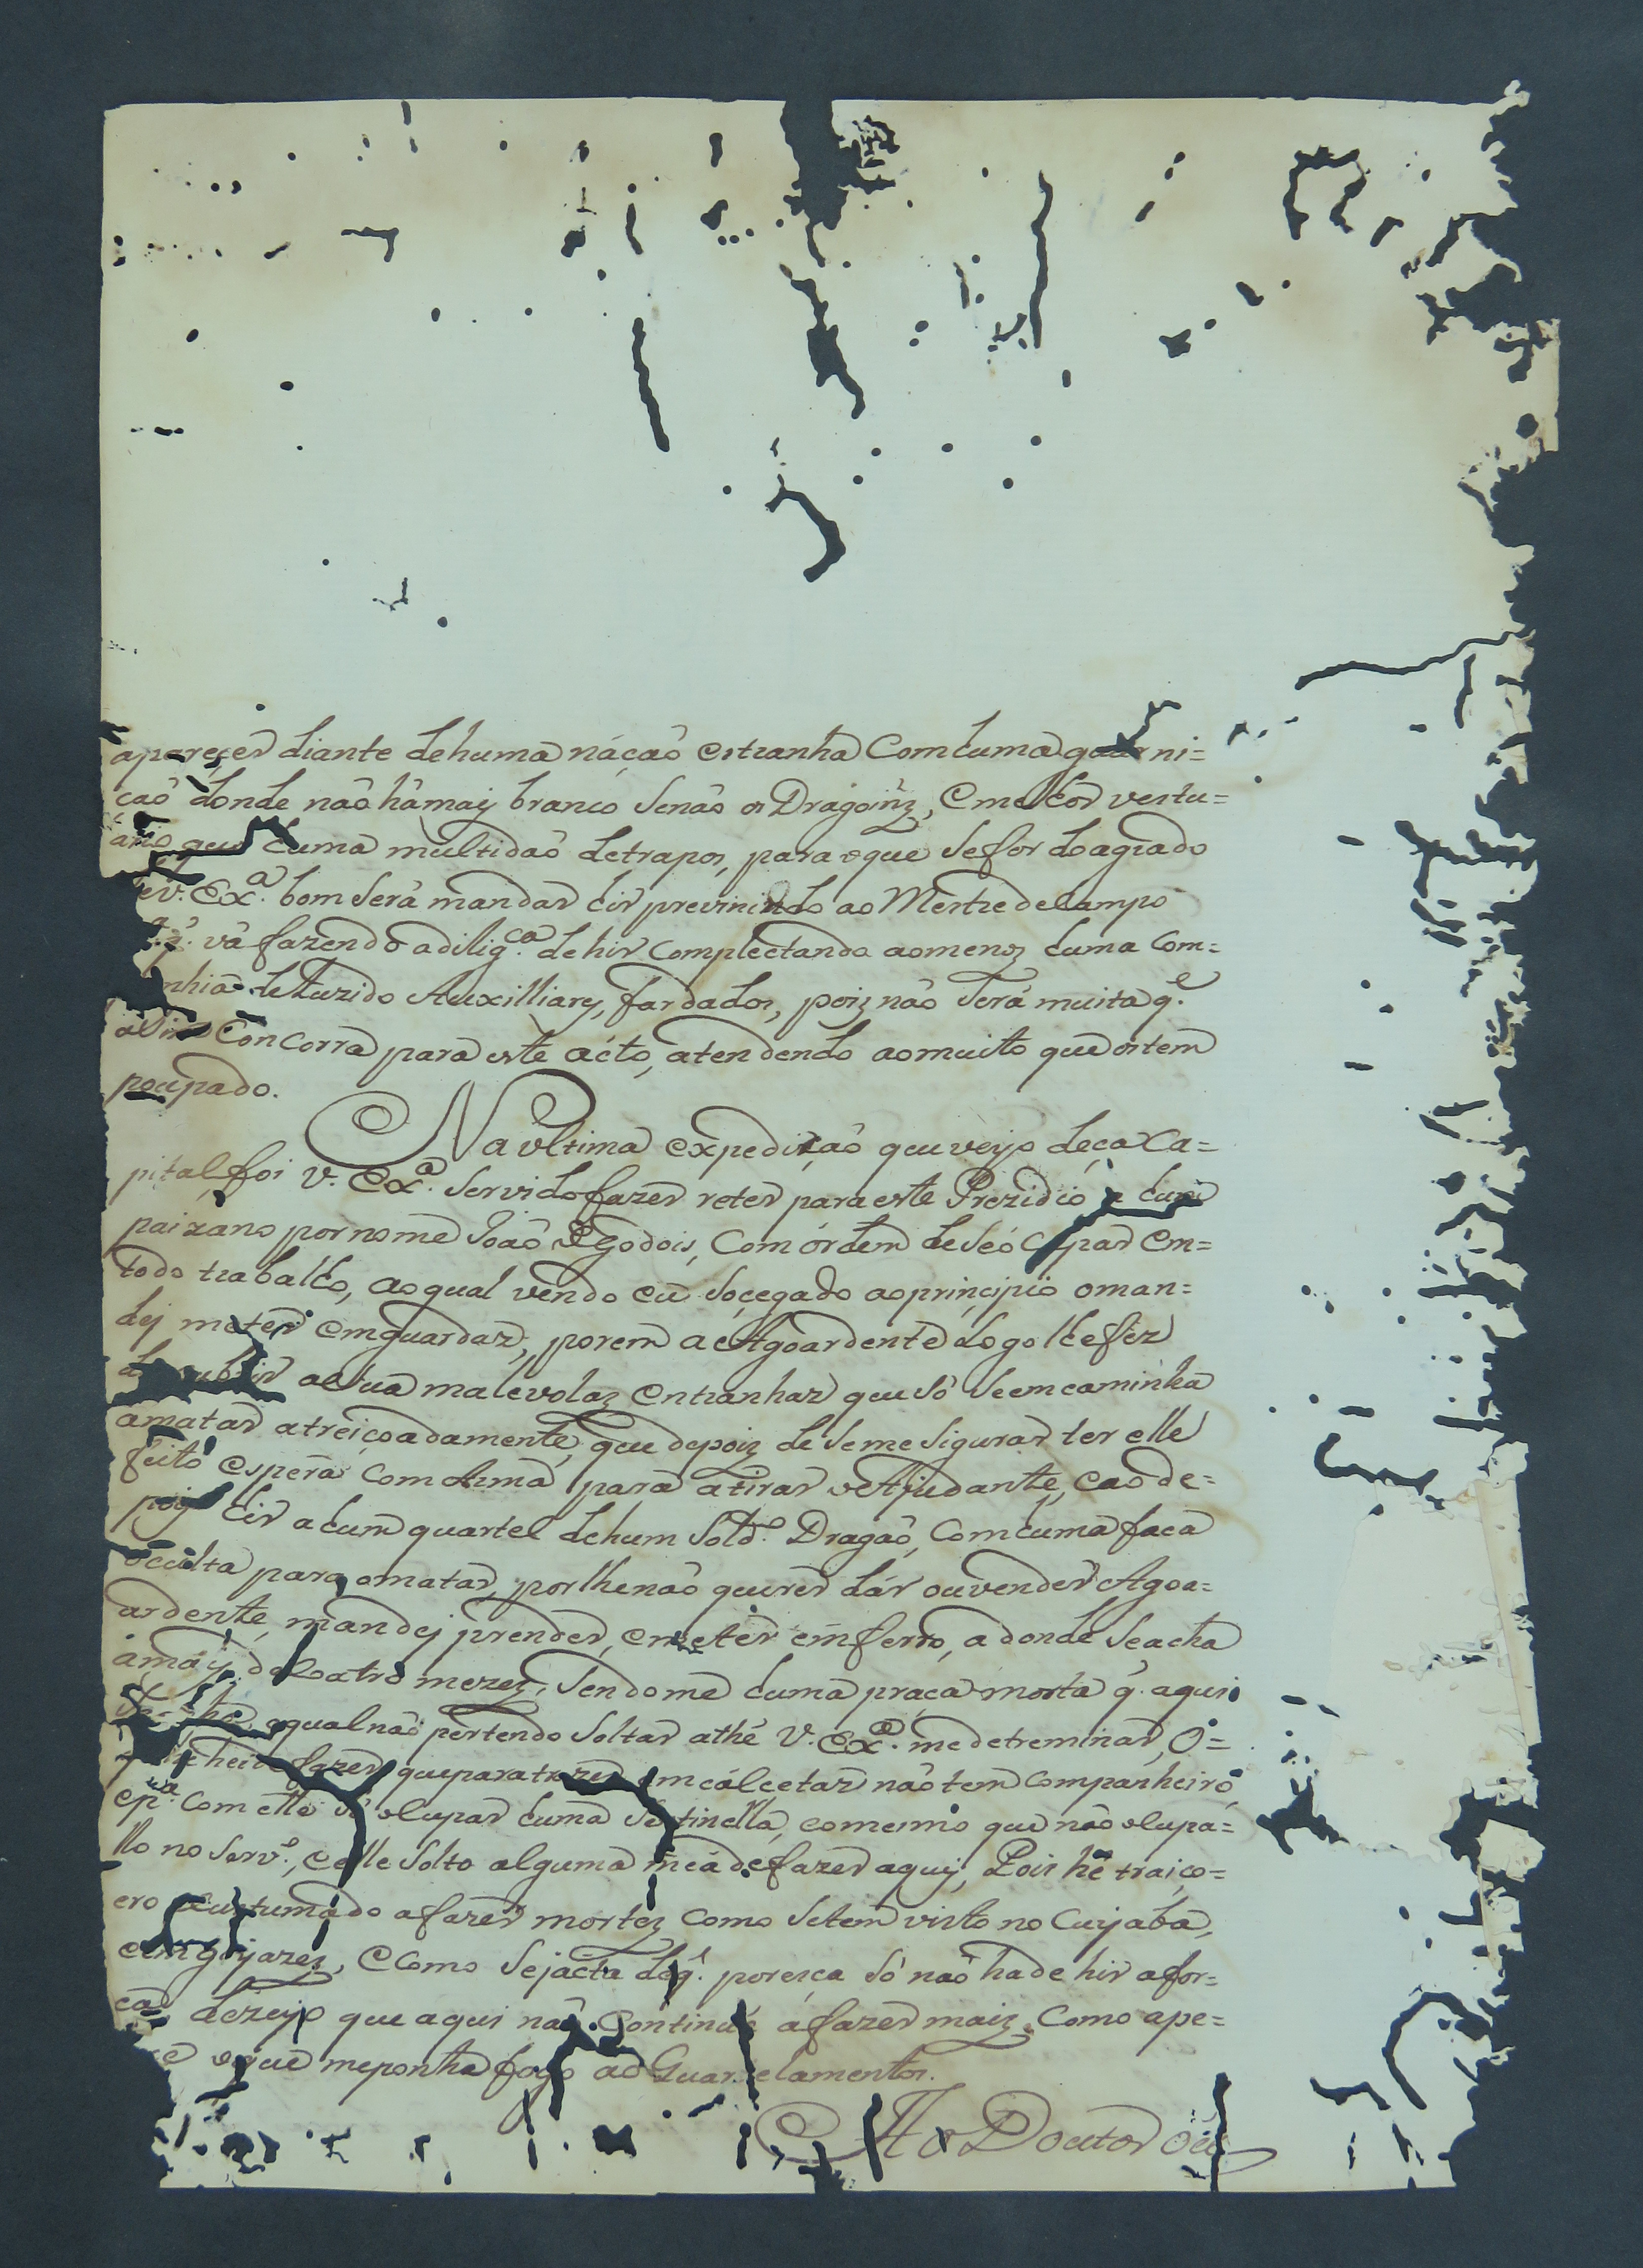 apareçer diante dehuma náçaõ estranha Comhuma guarni=
çaõ donde naõ hâmaiz branco Senaõ os Dragoinz, e melhor vestu=
ario que huma multidaõ detrapos, para oque Sefor doagrado
deV. Exª. bom Será mandar hir previnindo ao Mestre deCampo
pª. q̃. vá fazendo adiligçª. dehir Complectando aomenoz huma Com=
nhia deLuzido Auxilliarez, fardados, poiz naõ Será muita qᵉ.
Concorra para este ácto, atendendo aomuito que os tem
poupado.
Na ultima expediçaõ que veyo deçaCa=
pital, foi V. Exª. Servido fazer reter para este Prezidio a hum
paizano pornome Joaõ de Godois, Com órdem deSeó Cupar em=
todo trabalho, aoqual vendo eu Soçegado aoprinçipio oman=
dej meter emguardaz, porem aAgoardente Logo lhefez
asSua malevolaz entranhaz que Só Seemcaminha
amatar atreiçoadamente, que depoiz de Seme Sigurar ter elle
feito espera ComArma para atirar oAjudante, eao de=
poiz hir ahum quartel dehum Soldº. Dragaõ, Comhuma faca
occulta para omatar, porlhenaõ querer dár ouvender Agoa=
ardente, mandej prender, emeter emferro, adonde Seacha
ámaiz deCoatro mezez, Sendome huma praça morta q̃. aqui
tenho, oqual naõ pertendo Soltar athé V. Exª. medetreminar, O=
q̃. delle heide fazer, queparatrazer emcálçetaz naõ tem Companheiro,
epª. Com elle Só ocupar huma Sentinella, eomesmo que naõ ocupá=
llo no Servº., eelle Solto alguma meáde fazer aquj, Pois hé traiço=
ero acustumado afazer mortez, Como Setem visto no Cuyabá,
eemgoyazez, eComo Sejacta deq̃. poresça Só naõ hade hir afor=
ca, dezejo que aqui naõ Continue áfazer maiz. Como ape=
oque meponha fogo ao Guarzelamentos.
Ao Doutor Ou